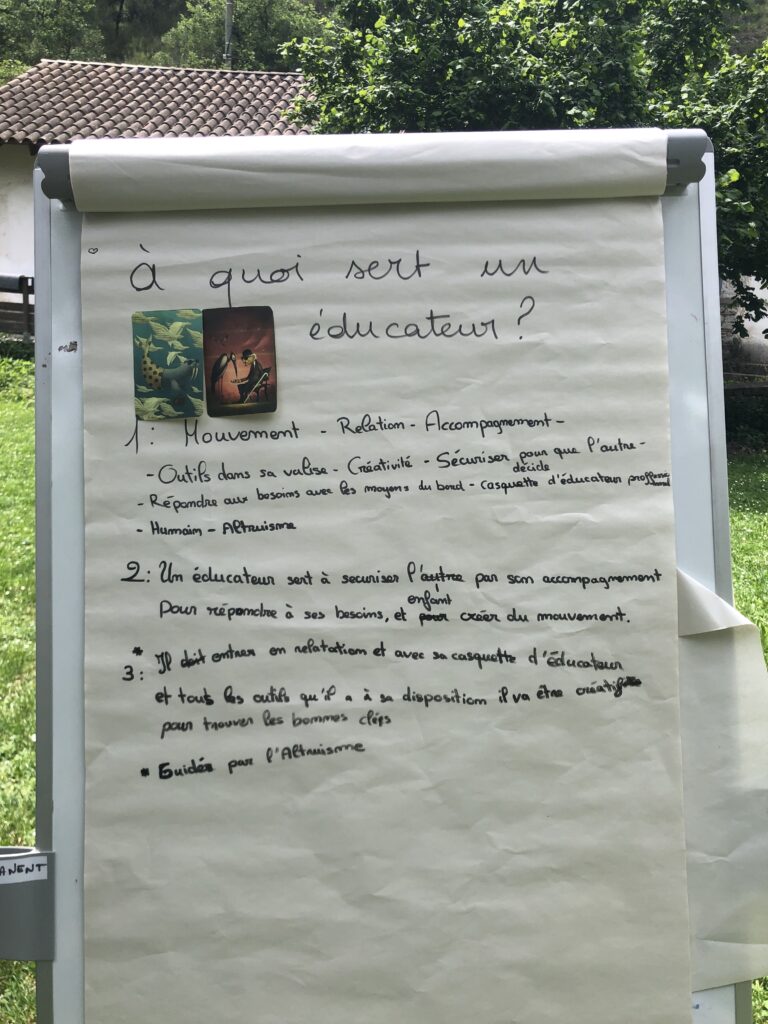 à quoi sert un
éducateur ?
1: Mouvement - Relation - Accompagnement -
- Outils dans sa valise - Créativité - Sécuriser pour que l'autre -
décide
- Répondre aux besoins avec les moyens du bord - casquette d'éducateur
- Humain - Altruisme
2: Un éducateur sert à securiser l'autre par son accompagnement
enfant
Pour répondre à ses besoins, et pour créer du mouvement.
* Il doit entrer en relatation et avec sa casquette d'éducateur
3:
et tous les outils qu'il a à sa disposition il va être créatif
pour trouver les bonnes clefs
* Guidés par l'Altruisme
ANENT